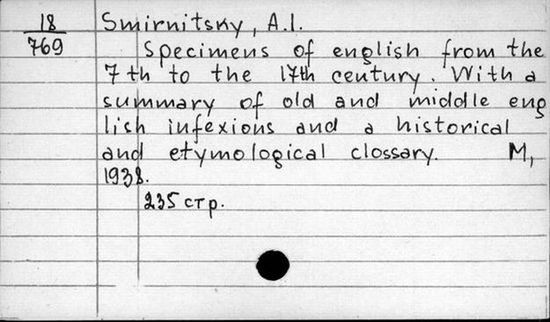 18
769
Smirnitsky, A.I.
Specimens of english from the
7th to the 17th century. With a
summary of old and middle eng
lish infexions and a historical
and etymological clossary. M,
1938.
235 стр.